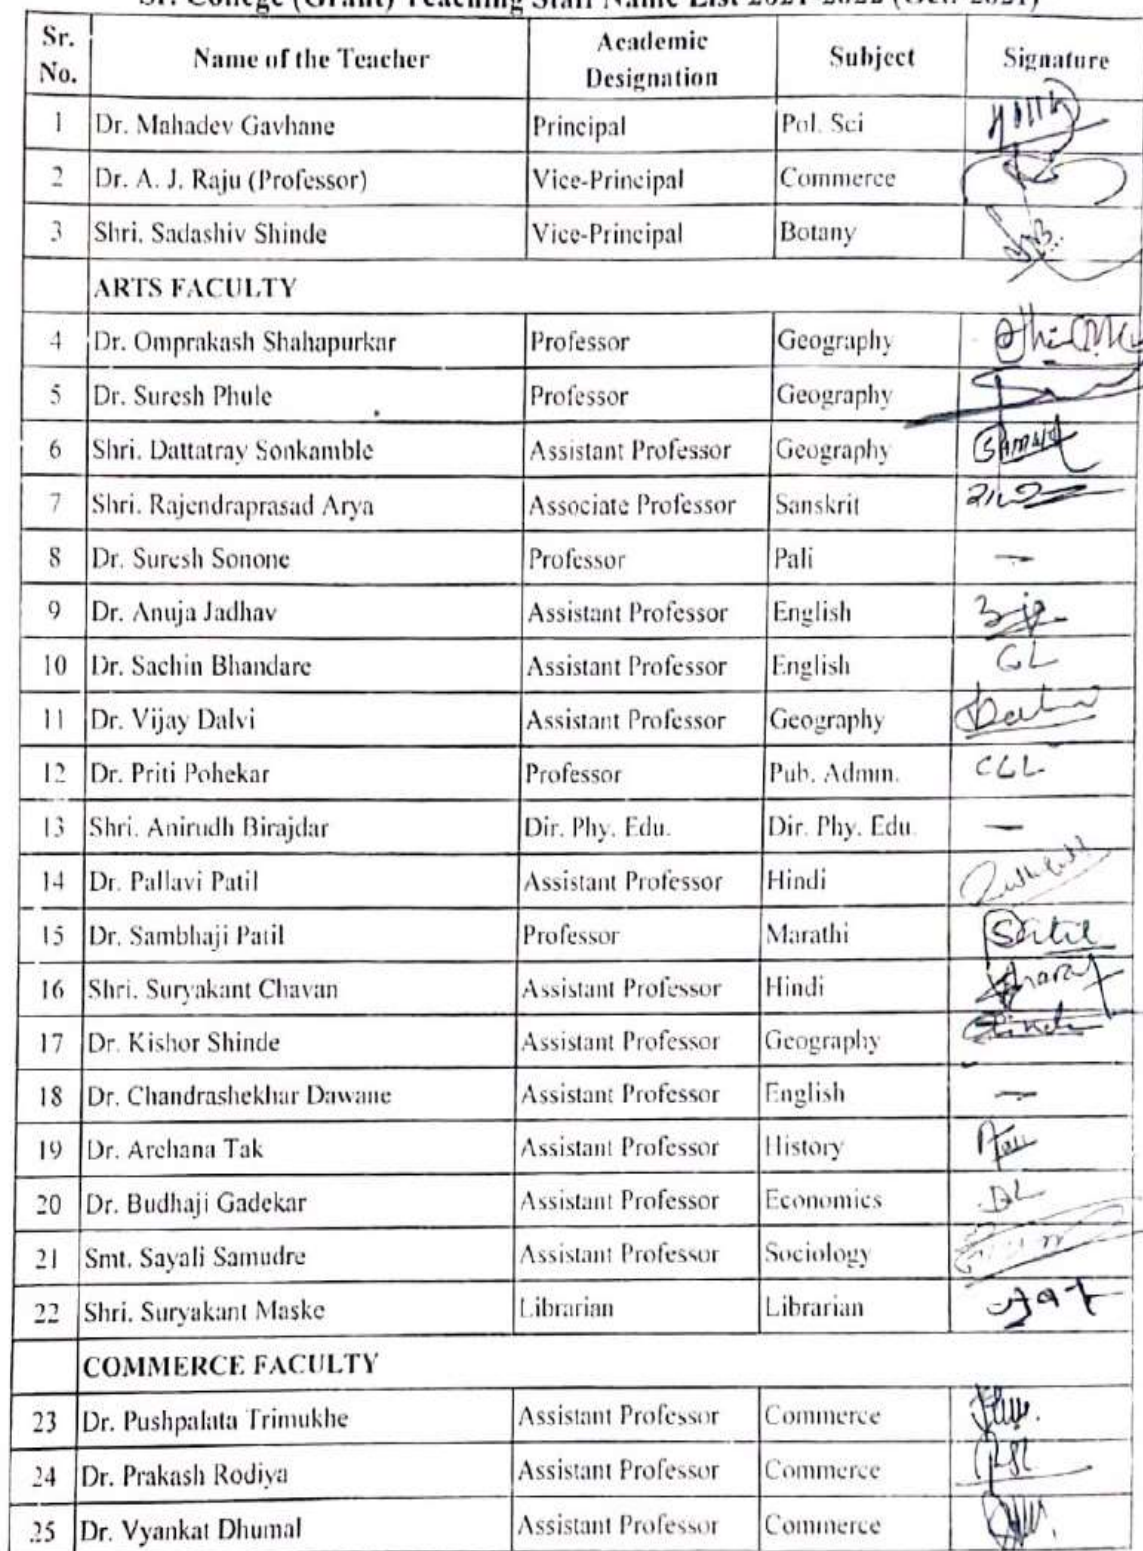 Sr. College (Grant) Teaching Staff Name List 2021-2022 (Oct. 2021)
Sr. No. Name of the Teacher Academic Designation Subject Signature
1 Dr. Mahadev Gavhane Principal Pol. Sci
2 Dr. A. J. Raju (Professor) Vice-Principal Commerce
3 Shri. Sadashiv Shinde Vice-Principal Botany
ARTS FACULTY
4 Dr. Omprakash Shahapurkar Professor Geography
5 Dr. Suresh Phule Professor Geography
6 Shri. Dattatray Sonkamble Assistant Professor Geography
7 Shri. Rajendraprasad Arya Associate Professor Sanskrit
8 Dr. Suresh Sonone Professor Pali —
9 Dr. Anuja Jadhav Assistant Professor English
10 Dr. Sachin Bhandare Assistant Professor English CL
11 Dr. Vijay Dalvi Assistant Professor Geography
12 Dr. Priti Pohekar Professor Pub. Admn. CCL
13 Shri. Anirudh Birajdar Dir. Phy. Edu. Dir. Phy. Edu. —
14 Dr. Pallavi Patil Assistant Professor Hindi
15 Dr. Sambhaji Patil Professor Marathi
16 Shri. Suryakant Chavan Assistant Professor Hindi
17 Dr. Kishor Shinde Assistant Professor Geography
18 Dr. Chandrashekhar Dawane Assistant Professor English —
19 Dr. Archana Tak Assistant Professor History
20 Dr. Budhaji Gadekar Assistant Professor Economics DL
21 Smt. Sayali Samudre Assistant Professor Sociology
22 Shri. Suryakant Maske Librarian Librarian
COMMERCE FACULTY
23 Dr. Pushpalata Trimukhe Assistant Professor Commerce
24 Dr. Prakash Rodiya Assistant Professor Commerce
25 Dr. Vyankat Dhumal Assistant Professor Commerce